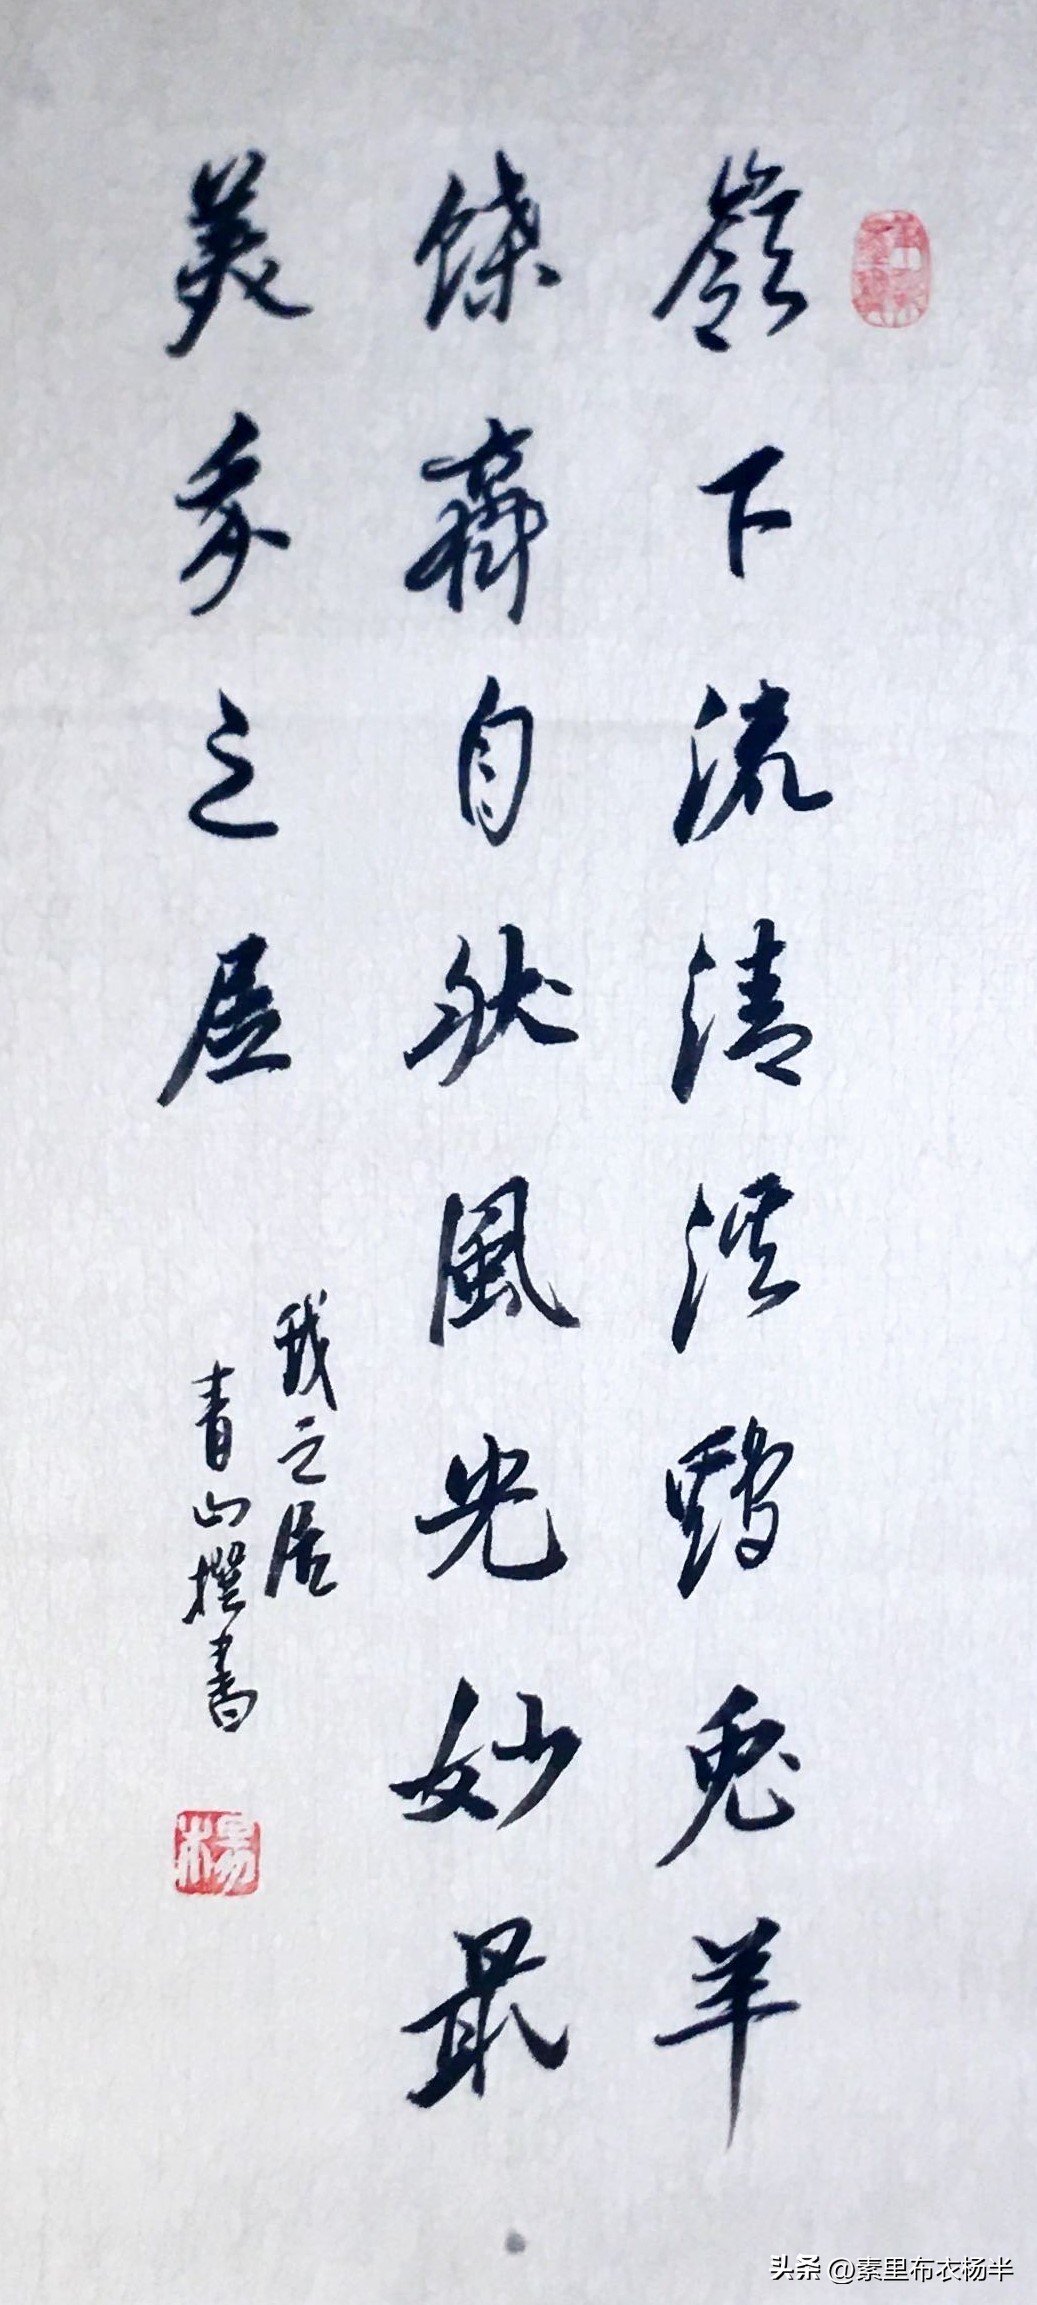 嶺下流清溪兔羊
自然風光妙最
美我之居
我之居
青山撰書
楊
头条 @素里布衣杨半